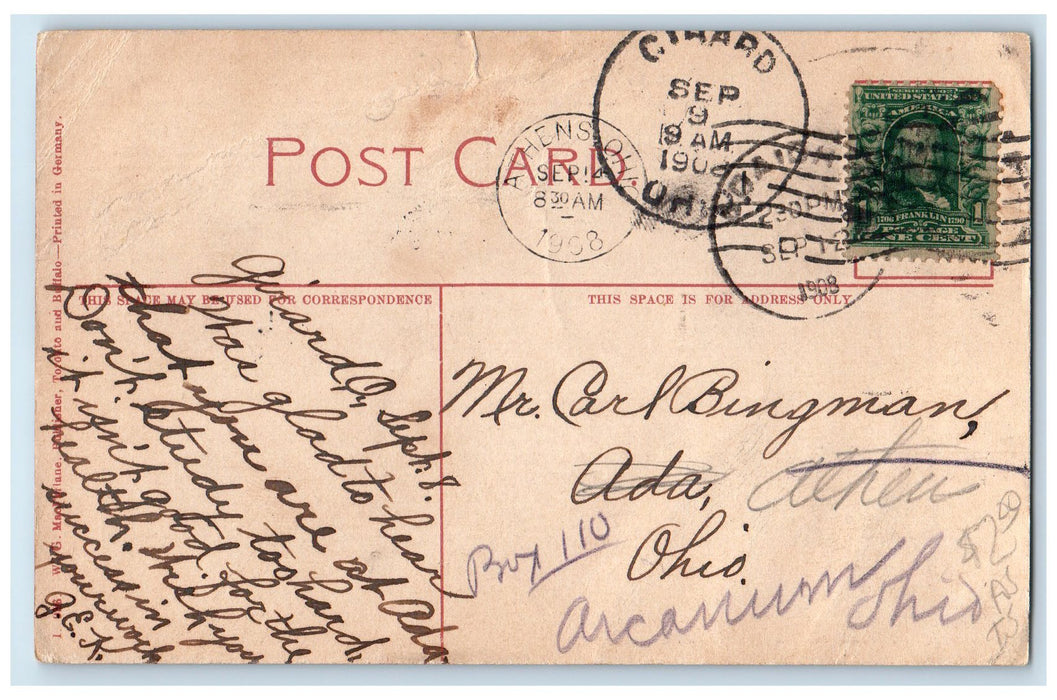 POST CARD.
GIRARD
SEP
9
9 AM
1908
OHIO
ATHENS, OHIO
SEP 14
8 30 AM
1908
ADA
2 30 PM
SEP 12
1908
SERIES 1902
UNITED STATES
AMERICA
1706 FRANKLIN 1790
1 1
POSTAGE
ONE CENT
THIS SPACE MAY BE USED FOR CORRESPONDENCE
THIS SPACE IS FOR ADDRESS ONLY
W. G. MacFarlane, Publisher, Toronto and Buffalo—Printed in Germany.
Girard O, Sept. 8.
Was glad to hear
that you are at Ada
Don't study too hard,
it isn't good for the
health. Wish you
success in
your work
J. E. K.
Mr. Carl Bingman,
Ada, Athens
Ohio.
Box 110
Arcanum Ohio